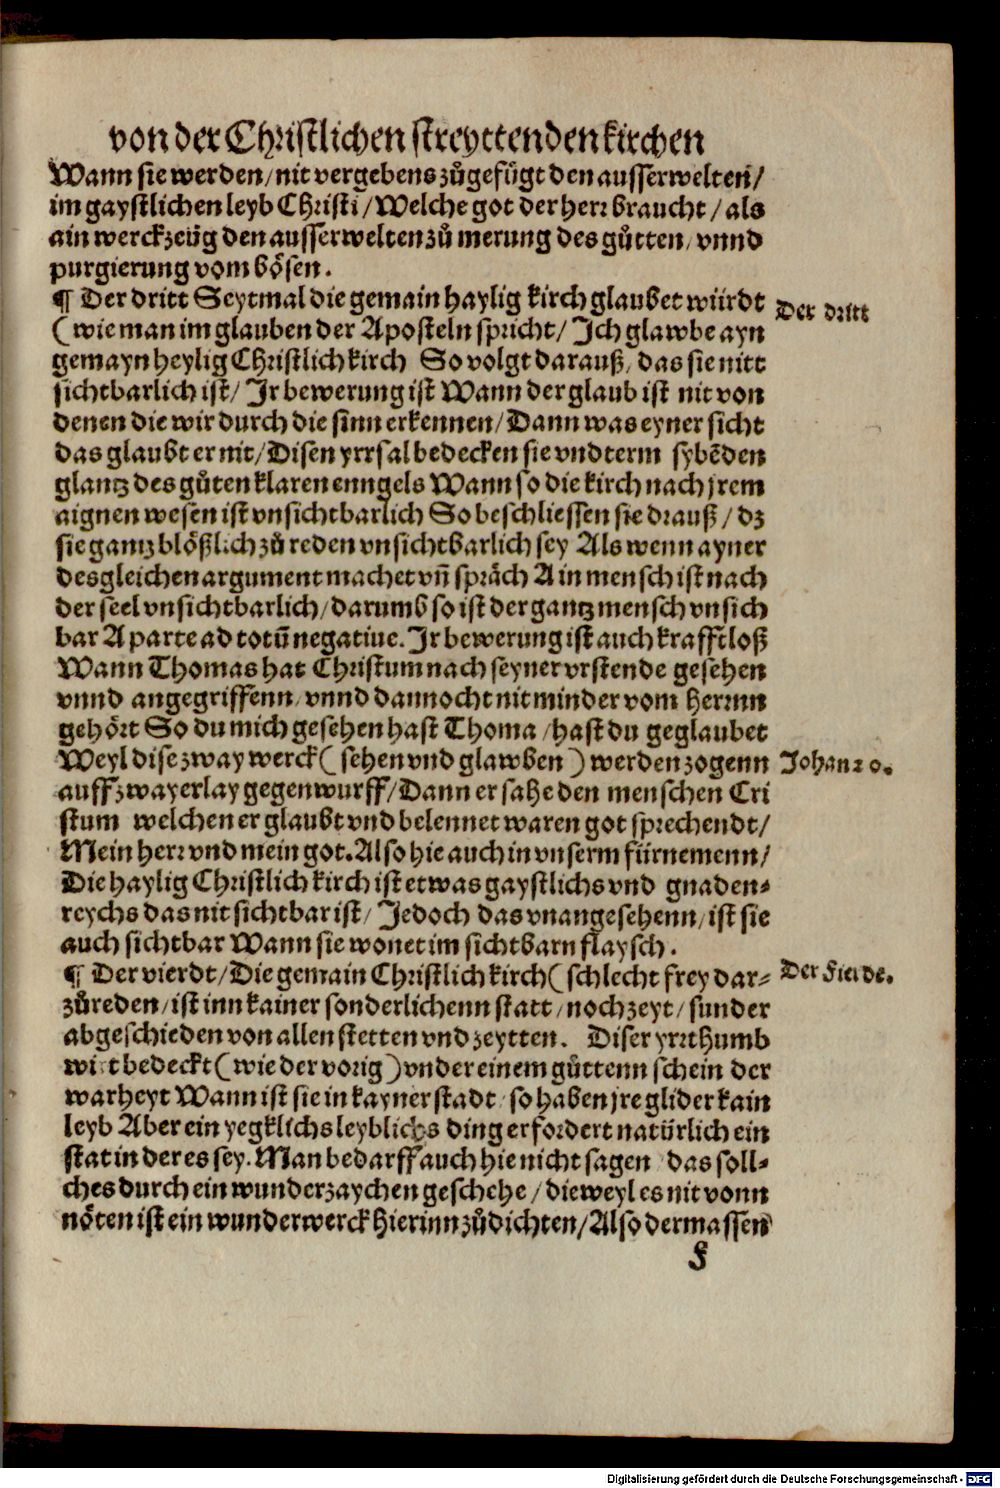 von der Christlichen streyttenden kirchen
Wann sie werden/ nit vergebens zůgefügt den ausserwelten/
im gaystlichen leyb Christi/ Welche got der herr braucht/ als
ain werckzeüg den ausserwelten zů merung des gůtten/ vnnd
purgierung vom bösen.
¶ Der dritt Seytmal die gemain haylig kirch glaubet würdt
Der dritt
(wie man im glauben der Aposteln spricht/ Ich glawbe ayn
gemayn heylig Christlich kirch So volgt darauß/ das sie nitt
sichtbarlich ist/ Ir bewerung ist Wann der glaub ist nit von
denen die wir durch die sinn erkennen/ Dann was eyner sicht
das glaubt er nit/ Disen yrrsal bedecken sie vnd term sybēden
glantz des gůten klaren enngels Wann so die kirch nach jrem
aignen wesen ist vnsichtbarlich So beschliessen sie drauß/ dz
sie gantz blößlich zů reden vnsichtbarlich sey Als wenn ayner
desgleichen argument machet vn̄ spräch Ain mensch ist nach
der seel vnsichtbarlich/ darumb so ist der gantz mensch vnsich
bar A parte ad totū negatiue. Ir bewerung ist auch krafftloß
Wann Thomas hat Christum nach seyner vrstende gesehen
vnnd angegriffenn/ vnnd dannocht nit minder vom herrnn
gehört So du mich gesehen hast Thoma/ hast du geglaubet
Weyl dise zway werck (sehen vnd glawben) werden zogenn
Johan 20.
auff zwayerlay gegenwurff/ Dann er sahe den menschen Cri
stum welchen er glaubt vnd belennet waren got sprechendt/
Mein herr vnd mein got. Also hie auch in vnserm fürnemenn/
Die haylig Christlich kirch ist etwas gaystlichs vnd gnaden-
reychs das nit sichtbar ist/ Jedoch das vnangesehenn/ ist sie
auch sichtbar Wann sie wonet im sichtbarn flaysch.
¶ Der vierdt/ Die gemain Christlich kirch (schlecht frey dar-
Der Fierde.
zůreden/ ist inn kainer sonderlichenn statt/ noch zeyt/ sunder
abgeschieden von allen stetten vnd zeytten. Diser yrrthumb
wirt bedeckt (wie der vorig) vnder einem gůttenn schein der
warheyt Wann ist sie in kayner stadt/ so haben jre glider kain
leyb Aber ein yegklichs leyblichs ding erfordert natürlich ein
stat in der es sey. Man bedarff auch hie nicht sagen das soll-
ches durch ein wunderzaychen geschehe/ dieweyl es nit vonn
nöten ist ein wunderwerck hierinn zůdichten/ Also dermassen
F
Digitalisierung gefördert durch die Deutsche Forschungsgemeinschaft - DFG